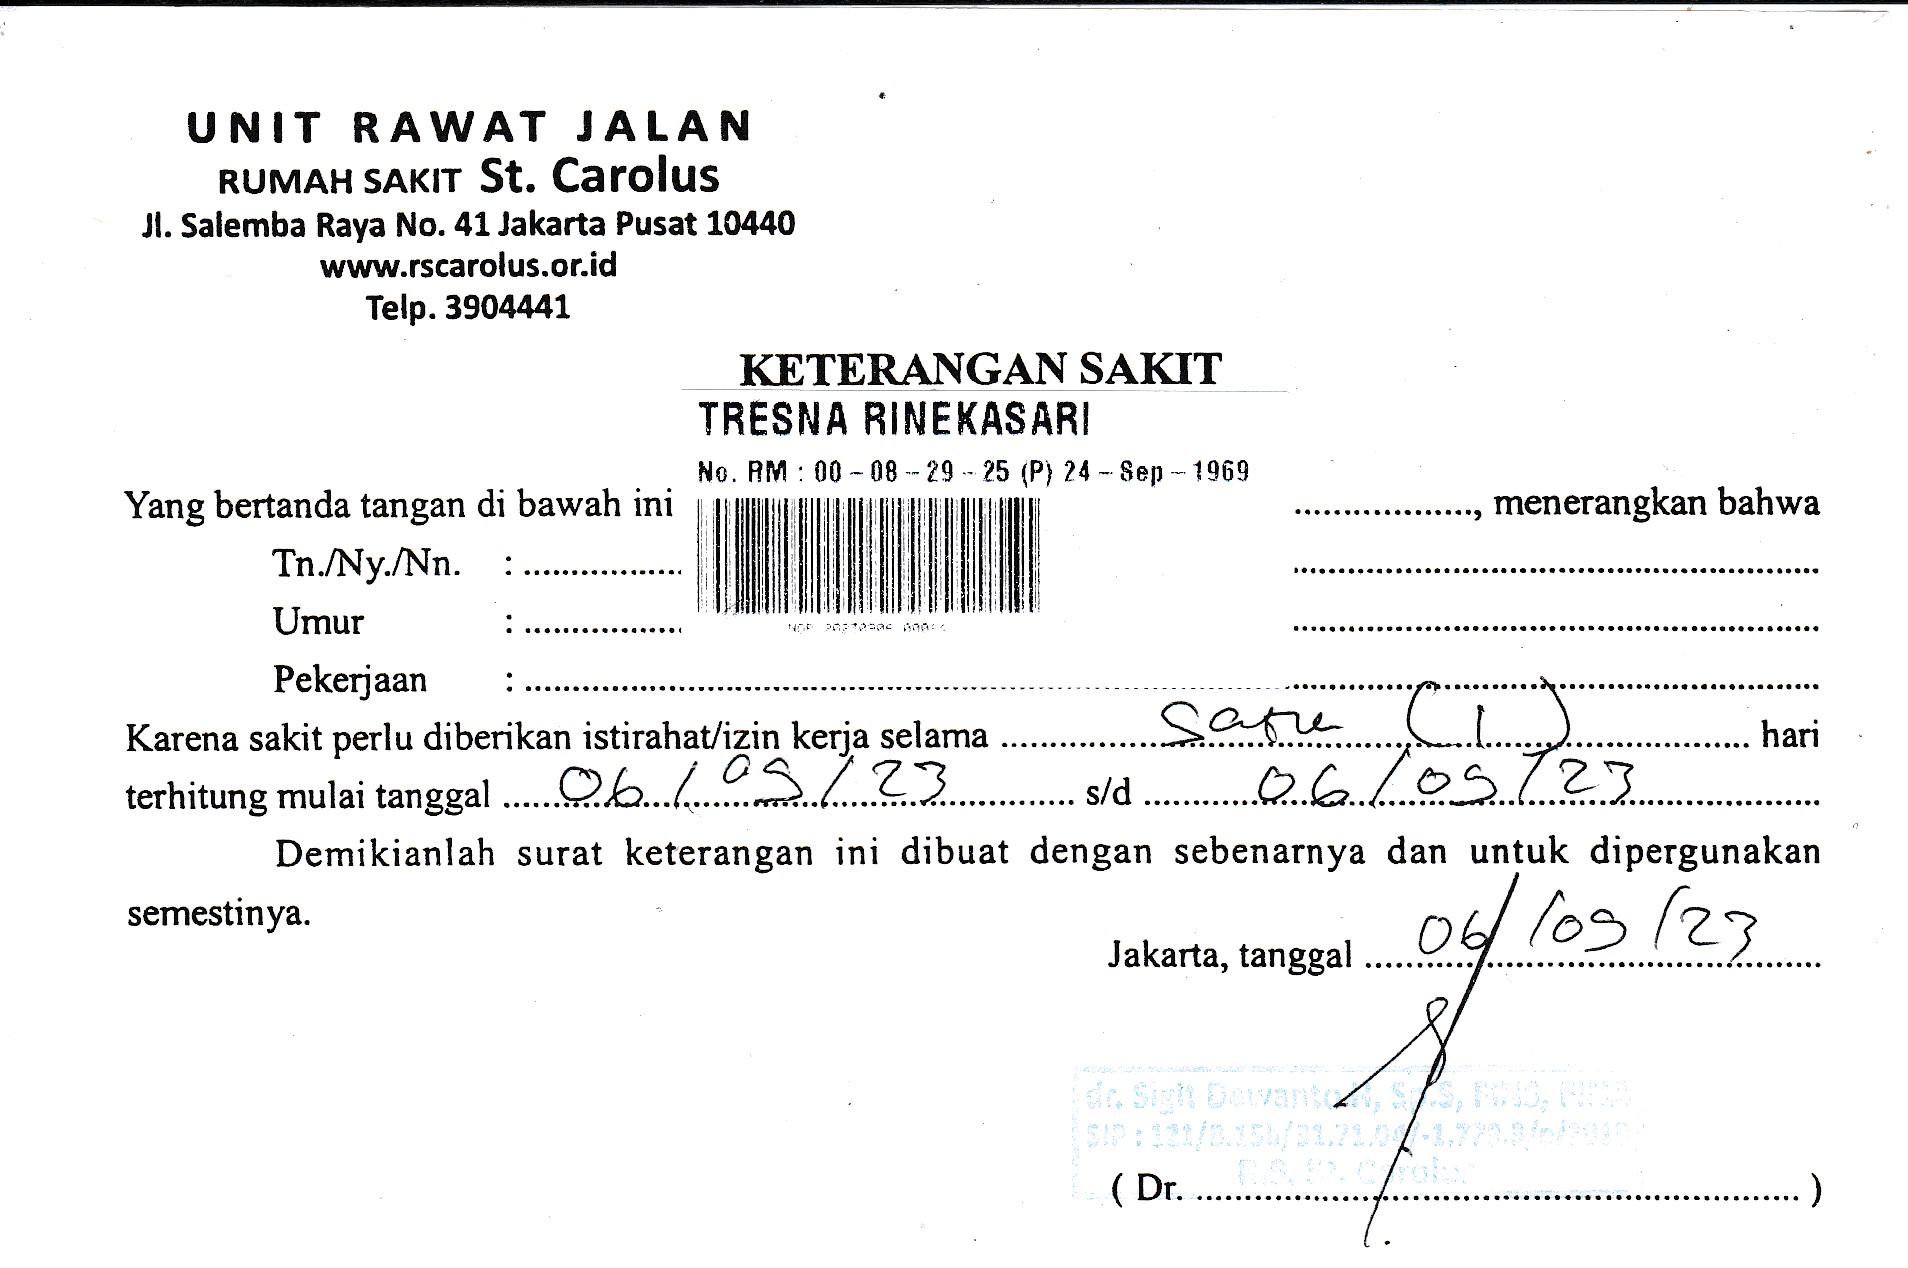 UNIT RAWAT JALAN
RUMAH SAKIT St. Carolus
Jl. Salemba Raya No. 41 Jakarta Pusat 10440
www.rscarolus.or.id
Telp. 3904441
KETERANGAN SAKIT
TRESNA RINEKASARI
No. RM : 00 - 08 - 29 - 25 (P) 24 - Sep - 1969
Yang bertanda tangan di bawah ini .................., menerangkan bahwa
Tn./Ny./Nn. : ................
Umur : ................
Pekerjaan : ................
Karena sakit perlu diberikan istirahat/izin kerja selama satu (1) hari
terhitung mulai tanggal 06/09/23 s/d 06/09/23
Demikianlah surat keterangan ini dibuat dengan sebenarnya dan untuk dipergunakan
semestinya.
Jakarta, tanggal 06/09/23
dr. Sigit Dewanto Sp.S,
SIP :
R.S. St. Carolus
( Dr. ................ )